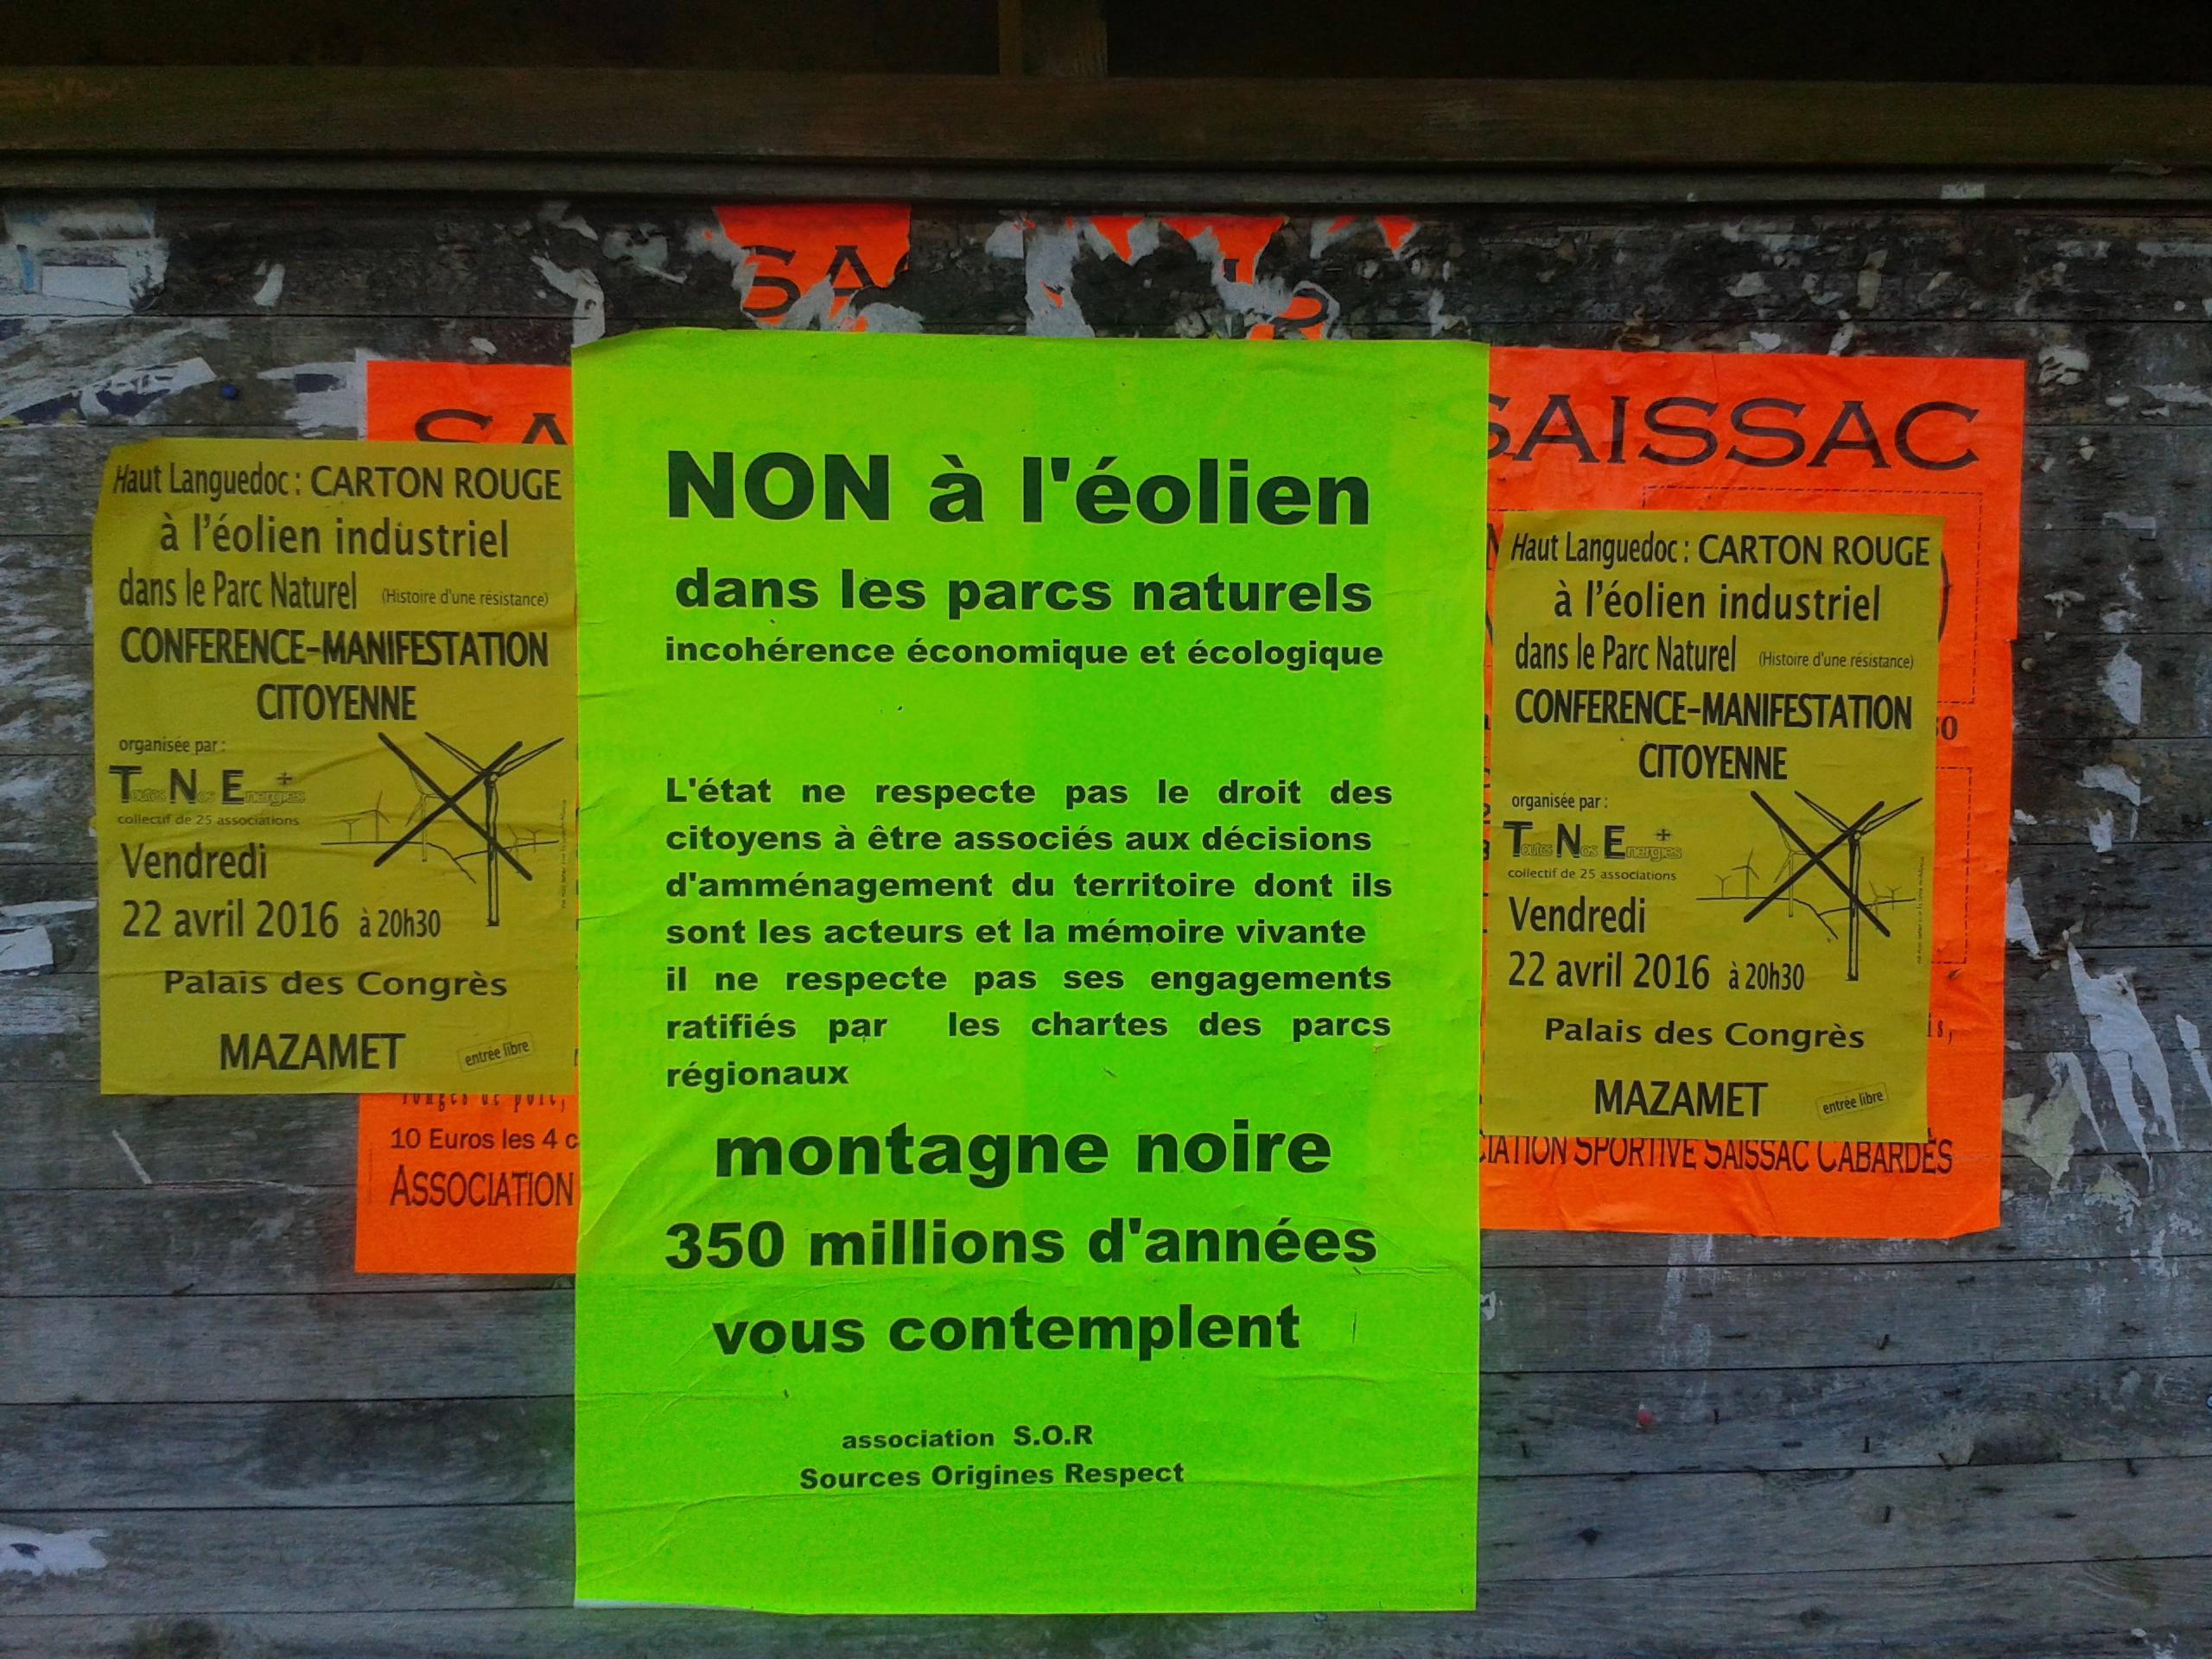 SA
SA
Haut Languedoc : CARTON ROUGE
à l'éolien industriel
dans le Parc Naturel (Histoire d'une résistance)
CONFERENCE-MANIFESTATION
CITOYENNE
organisée par :
Toutes Nos Energies +
collectif de 25 associations
Vendredi
22 avril 2016 à 20h30
Palais des Congrès
MAZAMET entrée libre
10 Euros les 4 c
ASSOCIATION
NON à l'éolien
dans les parcs naturels
incohérence économique et écologique
L'état ne respecte pas le droit des
citoyens à être associés aux décisions
d'amménagement du territoire dont ils
sont les acteurs et la mémoire vivante
il ne respecte pas ses engagements
ratifiés par les chartes des parcs
régionaux
montagne noire
350 millions d'années
vous contemplent
association S.O.R
Sources Origines Respect
SAISSAC
Haut Languedoc : CARTON ROUGE
à l'éolien industriel
dans le Parc Naturel (Histoire d'une résistance)
CONFERENCE-MANIFESTATION
CITOYENNE
organisée par :
Toutes Nos Energies +
collectif de 25 associations
Vendredi
22 avril 2016 à 20h30
Palais des Congrès
MAZAMET entrée libre
CIATION SPORTIVE SAISSAC CABARDÈS